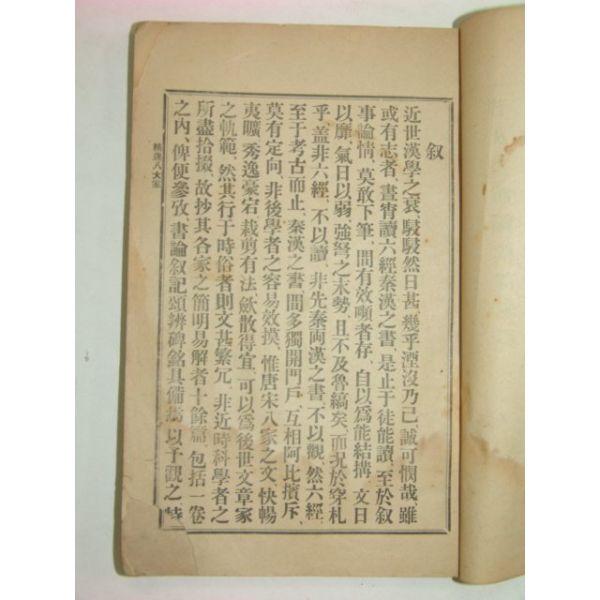 叙
近世漢學之衰、駸駸然日甚、幾乎湮沒乃已、誠可憫哉、雖
或有志者、晝宵讀六經秦漢之書、是止于徒能讀、至於叙
事論情、莫敢下筆、間有效嚬者存、自以爲能結搆、文日
以靡、氣日以弱、強弩之末勢、且不及魯縞矣、而况於穿札
乎、盖非六經、不以讀、非先秦両漢之書、不以觀、然六經
至于考古而止、秦漢之書、間多獨開門戶、互相阿比擯斥、
莫有定向、非後學者之容易效摸、惟唐宋八家之文、快暢
夷曠、秀逸豪宕、裁剪有法、歛散得宜、可以爲後世文章家
之軌範、然其行于時俗者則文甚繁冗、非近時科學者之
所盡拾掇、故抄其各家之簡明易解者十餘篇、包括一卷
之內、俾便參攷、書論叙記頌辨碑銘具備焉、以予觀之、特
精選八大家